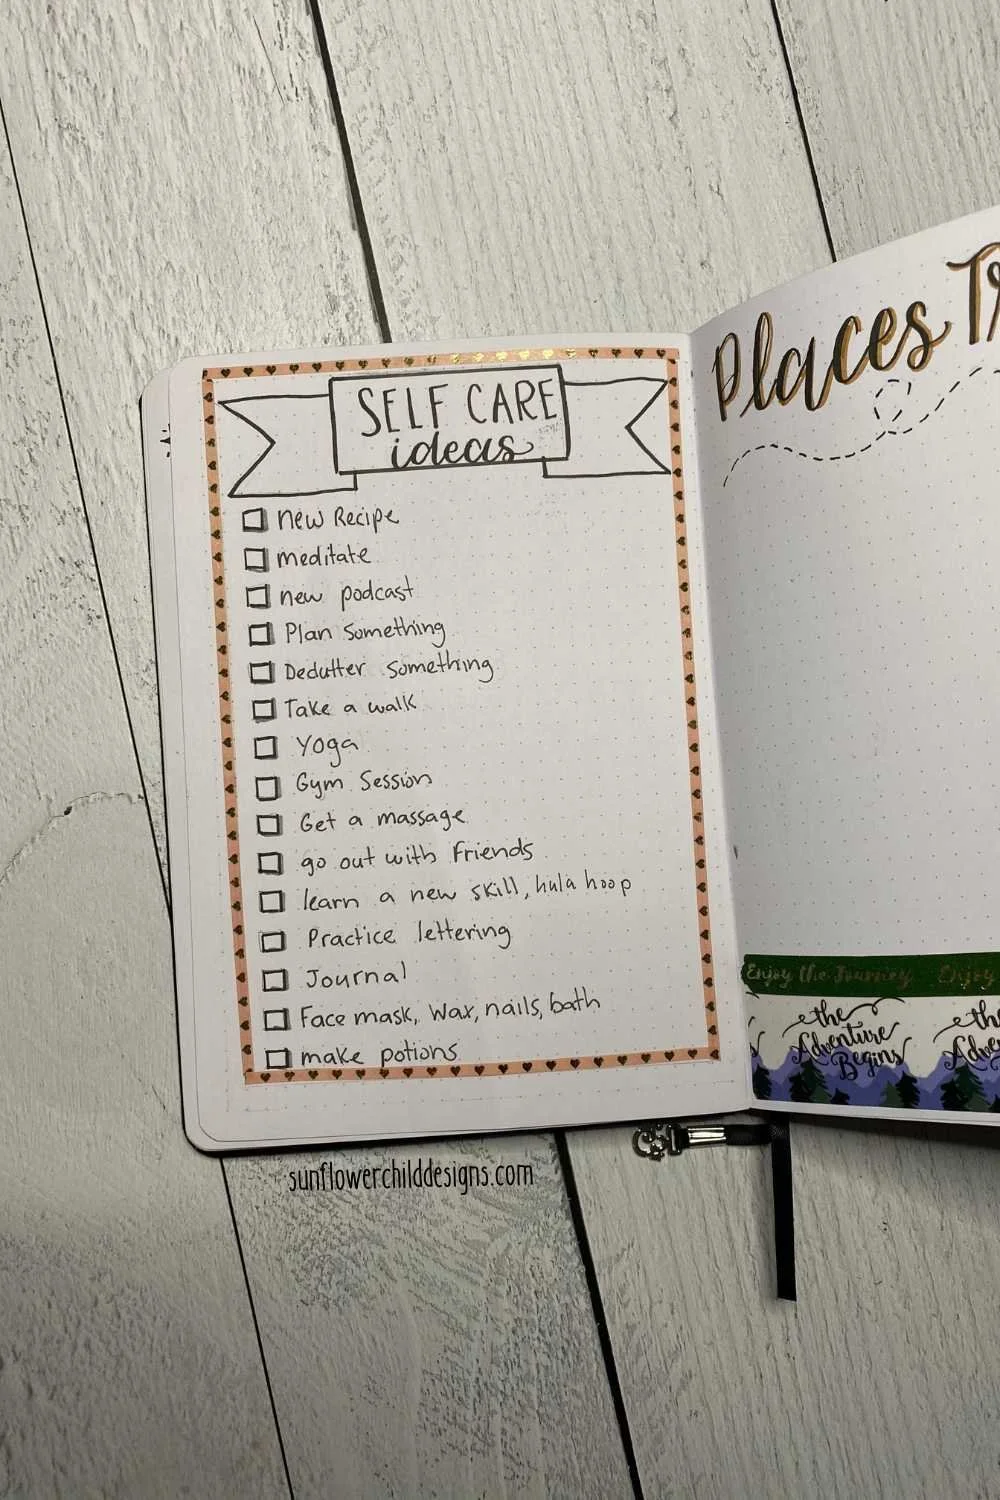 SELF CARE
ideas
new Recipe
meditate
new podcast
Plan Something
Declutter something
Take a walk
Yoga
Gym Session
Get a massage
go out with Friends
learn a new skill, hula hoop
Practice lettering
Journal
Face mask, Wax, nails, bath
make potions
Places Tr
Enjoy the Journey Enjoy
the the
Adventure Adve
Begins
sunflowerchilddesigns.com